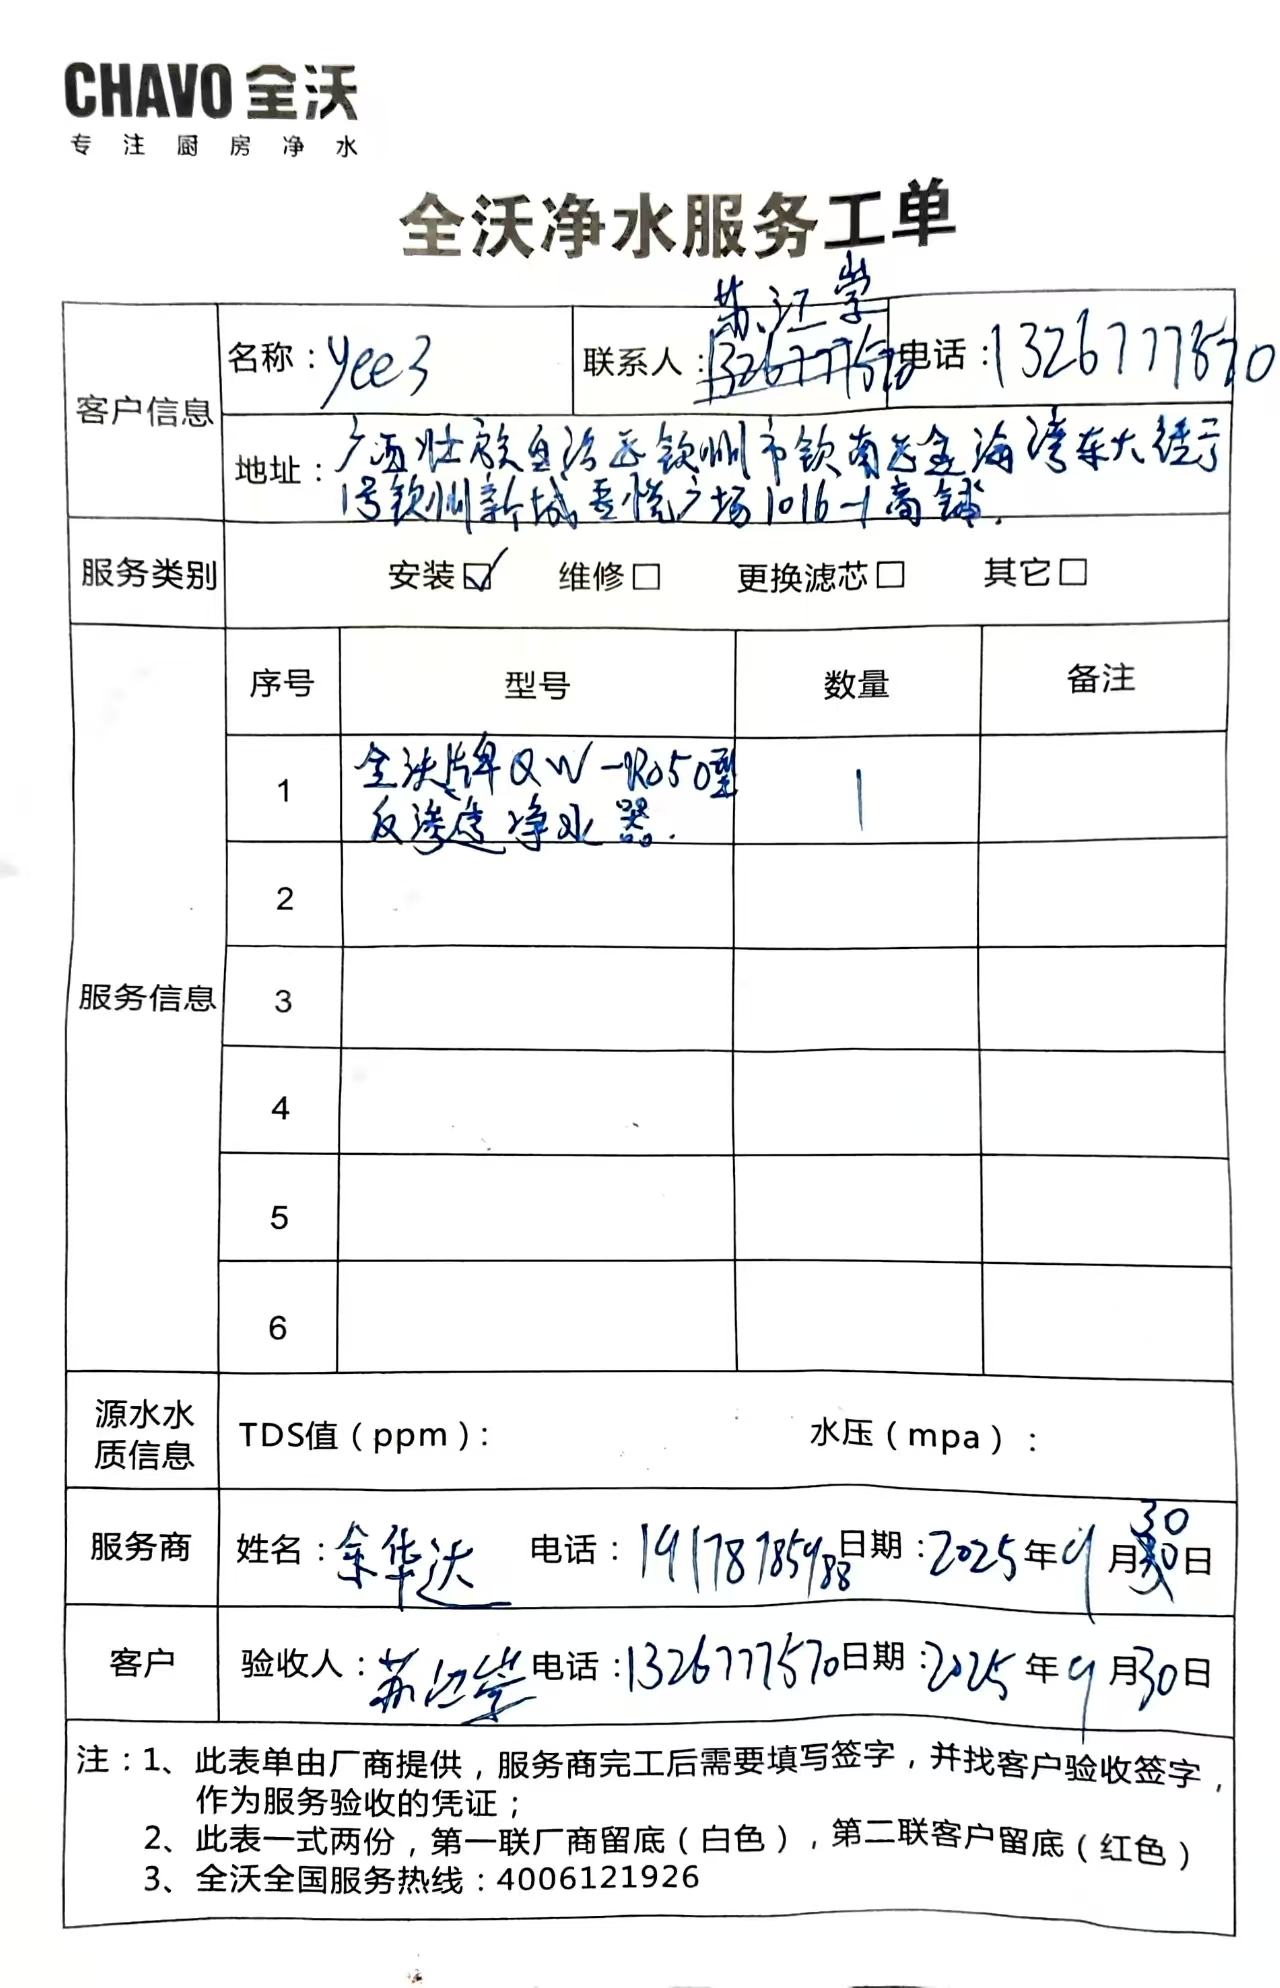 CHAVO 全沃
专注厨房净水
全沃净水服务工单
客户信息
名称：yee3
联系人：苏江
电话：
地址：广西壮族自治区钦州市钦南区金海湾东大街
1号钦州新城吾悦广场1016-1商铺.
服务类别
安装☑ 维修□ 更换滤芯□ 其它□
服务信息
序号 型号 数量 备注
1 全沃牌QW-RO50型 1
反渗透净水器.
2
3
4
5
6
源水水
质信息
TDS值（ppm）： 水压（mpa）：
服务商 姓名：余华达 电话： 日期：2025年9月30日
客户 验收人：苏江 电话：13267777570 日期：2025年9月30日
注：1、此表单由厂商提供，服务商完工后需要填写签字，并找客户验收签字，
作为服务验收的凭证；
2、此表一式两份，第一联厂商留底（白色），第二联客户留底（红色）
3、全沃全国服务热线：4006121926